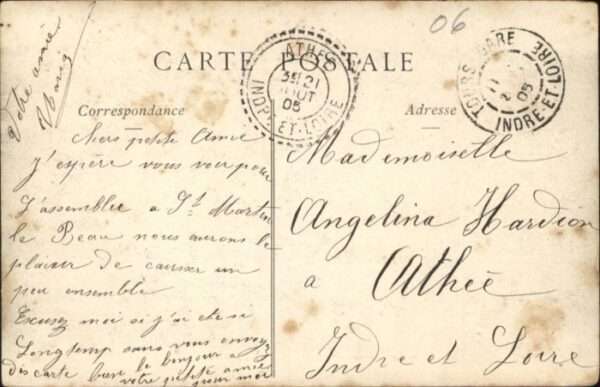 06
CARTE POSTALE
Correspondance
Adresse
ATHÉE
21
AOUT
05
INDRE-ET-LOIRE
TOURS GARE
05
INDRE-ET-LOIRE
Votre amie
Chers petite Amie
j'espère vous voir pour
l'assemblee a St Martin
le Beau nous aurons le
plaisir de causser un
peu ensemble
Excusez moi si j'ai ete si
Longtemp sans vous envoyez
des carte bien le bonjour a
votre petite amie
pour moi
Mademoiselle
Angelina Hardion
a Athée
Indre et Loire